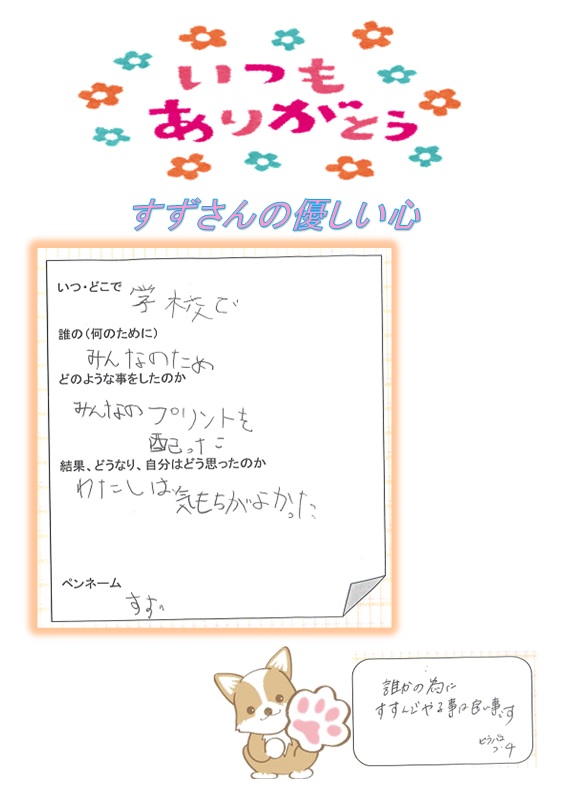 いつも
ありがとう
すずさんの優しい心
いつ・どこで
学校で
誰の(何のために)
みんなのため
どのような事をしたのか
みんなの プリントを
配った
結果、どうなり、自分はどう思ったのか
わたしは 気もちがよかった
ペンネーム
すず
誰かの為に
すすんでやる事は良い事です